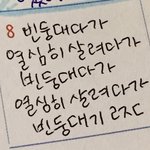 8 빈둥대다가
열심히 살려다가
빈둥대다가
열심히 살려다가
빈둥대기 굿JC